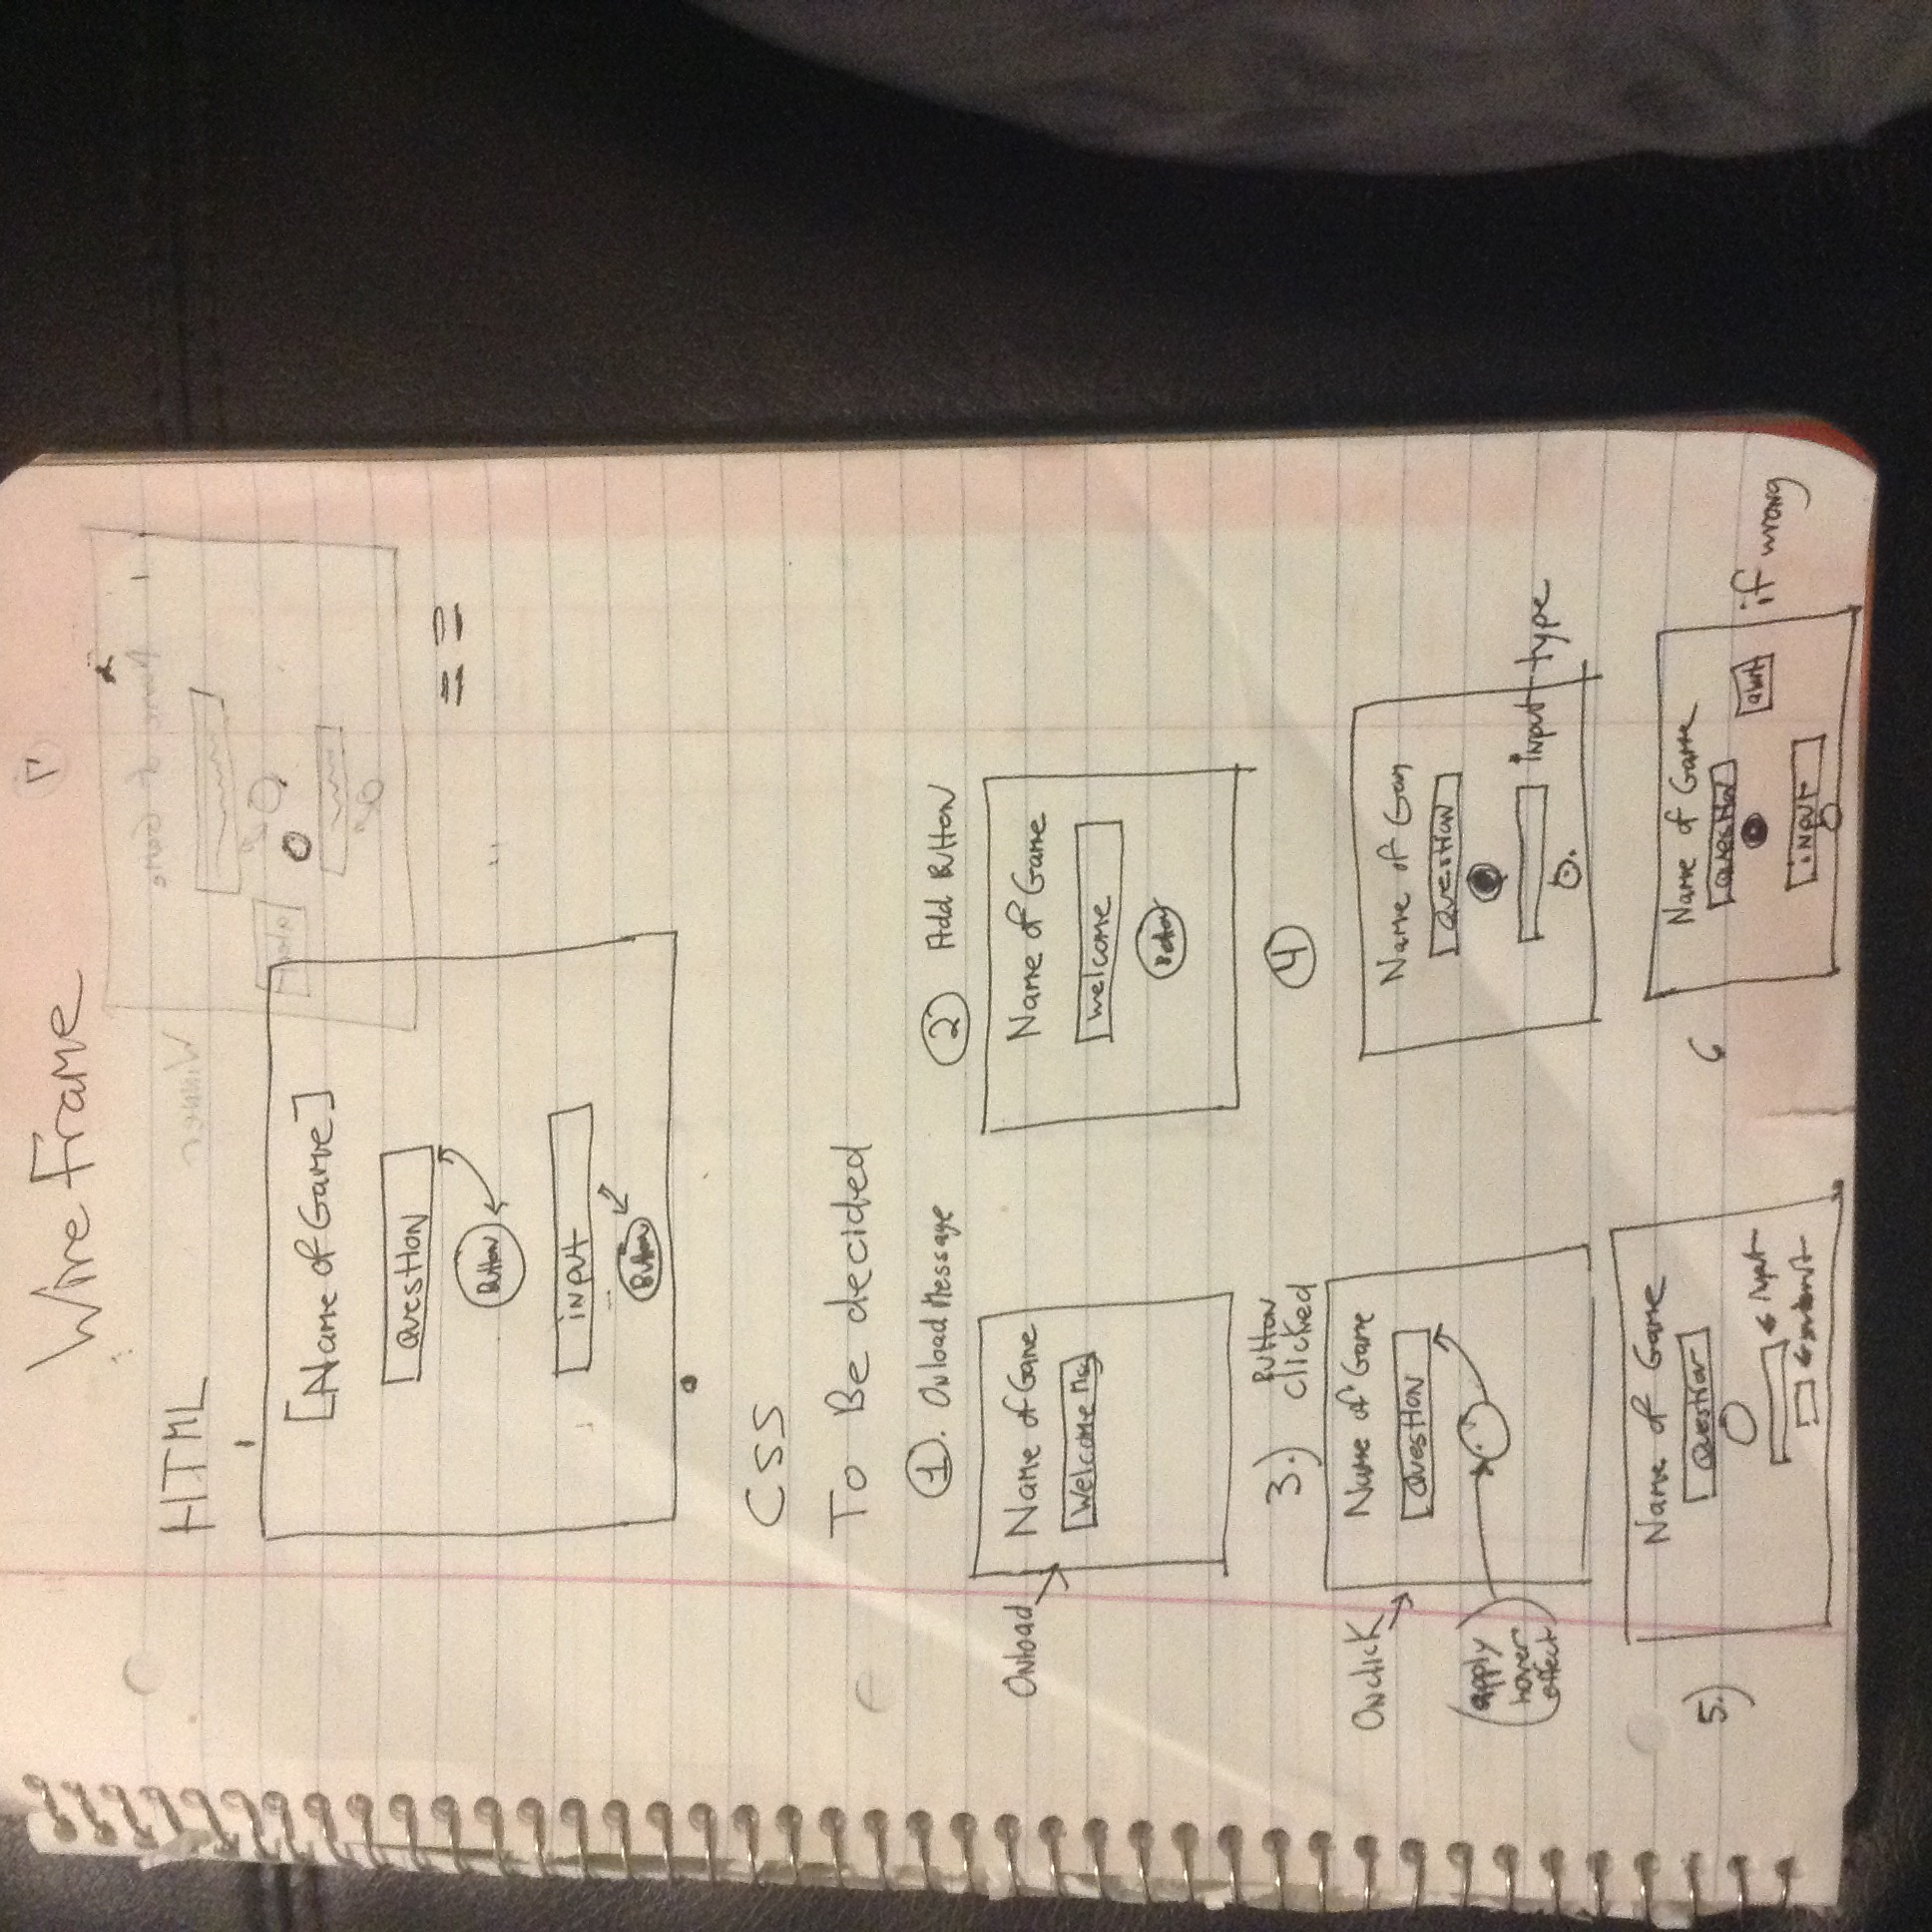 Wire Frame
HTML
[Name of Game]
Question
Button
input
Button
==
CSS
To Be decided
1. Onload Message
2 Add Button
Onload
Name of Game
Welcome Msg
Name of Game
welcome
Button
3.) Button
clicked
4
Onclick
Name of Game
Question
apply
hover
effect
Name of Gam
Question
input type
5.)
Name of Game
Question
input
submit
6
Name of Game
Question
alert
if wrong
input
7
Name of Game
Winner
alert